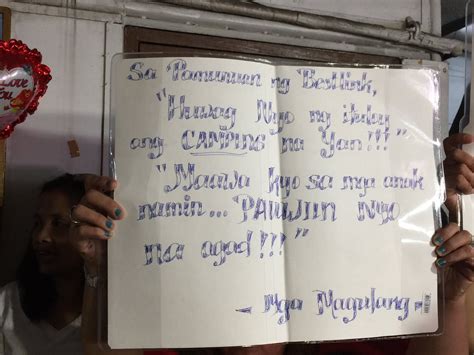 Sa Pamunuan ng Bestlink,
"Huwag Niyo ng ituloy
ang CAMPING na Yan!!!"
"Maawa kyo sa mga anak
namin... PAUWIIN Niyo
na agad!!!"
- Mga Magulang -
Love
You